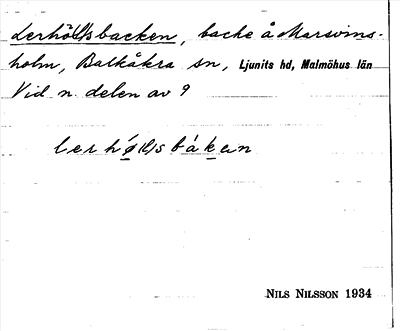 Lerhö(l)lsbacken, backe å Marsvins-
holm, Balkåkra sn, Ljunits hd, Malmöhus län
Vid n. delen av 9
NILS NILSSON 1934